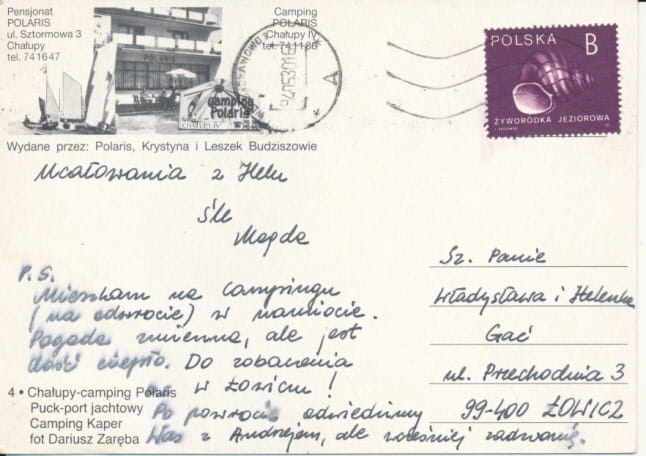 Pensjonat
POLARIS
ul. Sztormowa 3
Chałupy
tel. 741647
POLARIS
camping
Polaris
Camping
POLARIS
Chałupy IV
tel. 741186
POLSKA B
ŻYWORODKA JEZIOROWA
Wydane przez: Polaris, Krystyna i Leszek Budziszowie
Ucałowania z Helu
śle
Magda
P.S.
Mieszkam na campingu
(na odwrocie) w namiocie.
Pogoda zmienna, ale jest
dość ciepło. Do zobaczenia
w Łowiczu!
Po powrocie odwiedzimy
Was z Andrzejem, ale wcześniej zadzwonię.
Sz. Panie
Władysława i Helenka
Gać
ul. Przechodnia 3
99-400 ŁOWICZ
4 • Chałupy-camping Polaris
Puck-port jachtowy
Camping Kaper
fot Dariusz Zaręba